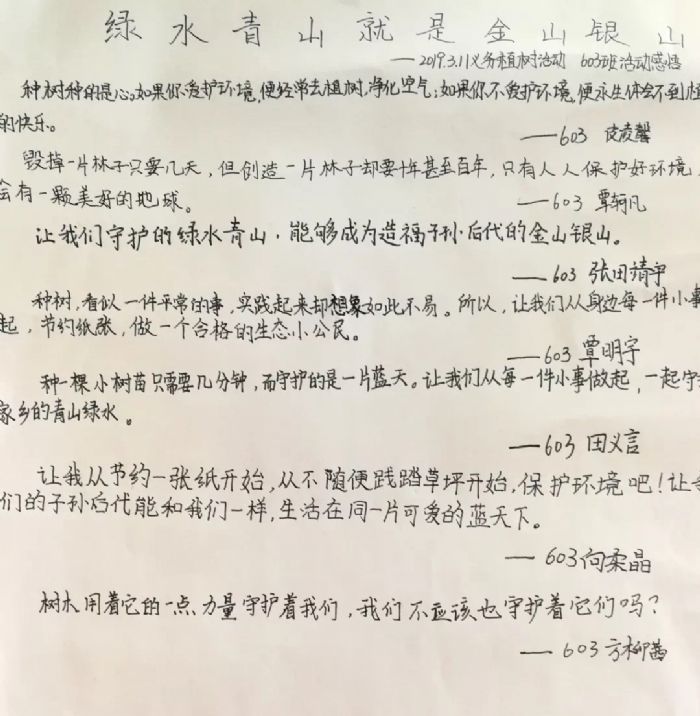 绿水青山就是金山银山
——2019.3.11义务植树活动 603班活动感悟
种树种的是心。如果你爱护环境,便经常去植树,净化空气;如果你不爱护环境,便永生体会不到植
的快乐。
——603 皮凌馨
毁掉一片林子只要几天,但创造一片林子却要十年甚至百年,只有人人保护好环境,
会有一颗美好的地球。
——603 覃轲凡
让我们守护的绿水青山,能够成为造福子孙后代的金山银山。
——603 张田靖宇
种树,看似一件平常的事,实践起来却想象如此不易。所以,让我们从身边每一件小事
起,节约纸张,做一个合格的生态小公民。
——603 覃明宇
种一棵小树苗只需要几分钟,而守护的是一片蓝天。让我们从每一件小事做起,一起守
家乡的青山绿水。
——603 田义言
让我从节约一张纸开始,从不随便践踏草坪开始,保护环境吧!让我
们的子孙后代能和我们一样,生活在同一片可爱的蓝天下。
——603向柔晶
树木用着它的一点力量守护着我们,我们不应该也守护着它们吗?
——603 方柳茜